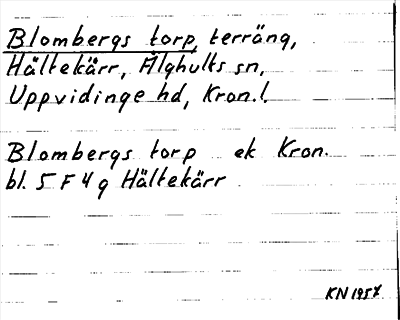 Blombergs torp, terräng,
Hältekärr, Älghults sn,
Uppvidinge hd, Kron.l.
Blombergs torp ek Kron.
bl. 5 F 4 g Hältekärr
KN 1957